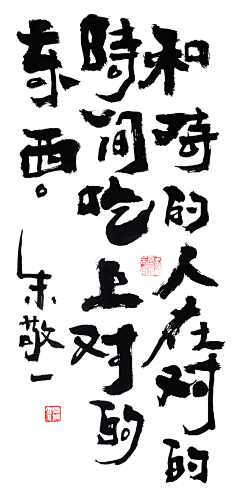 和對的人在对的
時间吃上对的
東西。
朱敬一